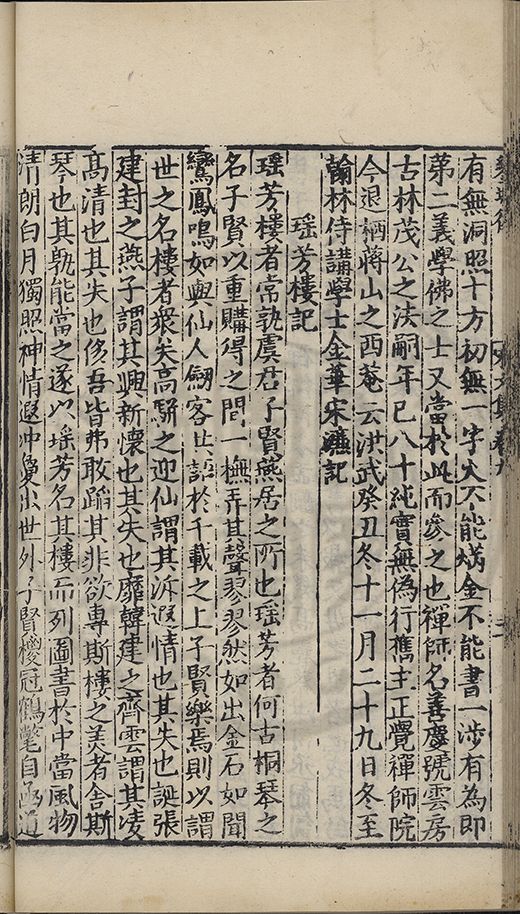 有無洞照十方初無一字火不能焫金不能書一涉有為即
第二義學佛之士又當於此而參之也禪師名善慶號雲房
古林茂公之法嗣年已八十純實無偽行舊主正覺禪師院
今退栖蔣山之西菴云洪武癸丑冬十一月二十九日冬至
翰林侍講學士金華宋濂記
瑶芳樓記
瑶芳樓者常孰虞君子賢燕居之所也瑶芳者何古桐琴之
名子賢以重購得之間一撫弄其聲翏翏然如出金石如聞
鸞鳳鳴如與仙人劒客共語於千載之上子賢樂焉則以謂
世之名樓者衆矣高駢之迎仙謂其泝遐情也其失也誕張
建封之燕子謂其興新懷也其失也靡韓建之齊雲謂其凌
高清也其失也侈吾皆弗敢蹈其非欲專斯樓之美者舍斯
琴也其孰能當之遂以瑶芳名其樓而列圖書於中當風物
清朗白月獨照神情遐冲敻出世外子賢椶冠鶴氅自函道